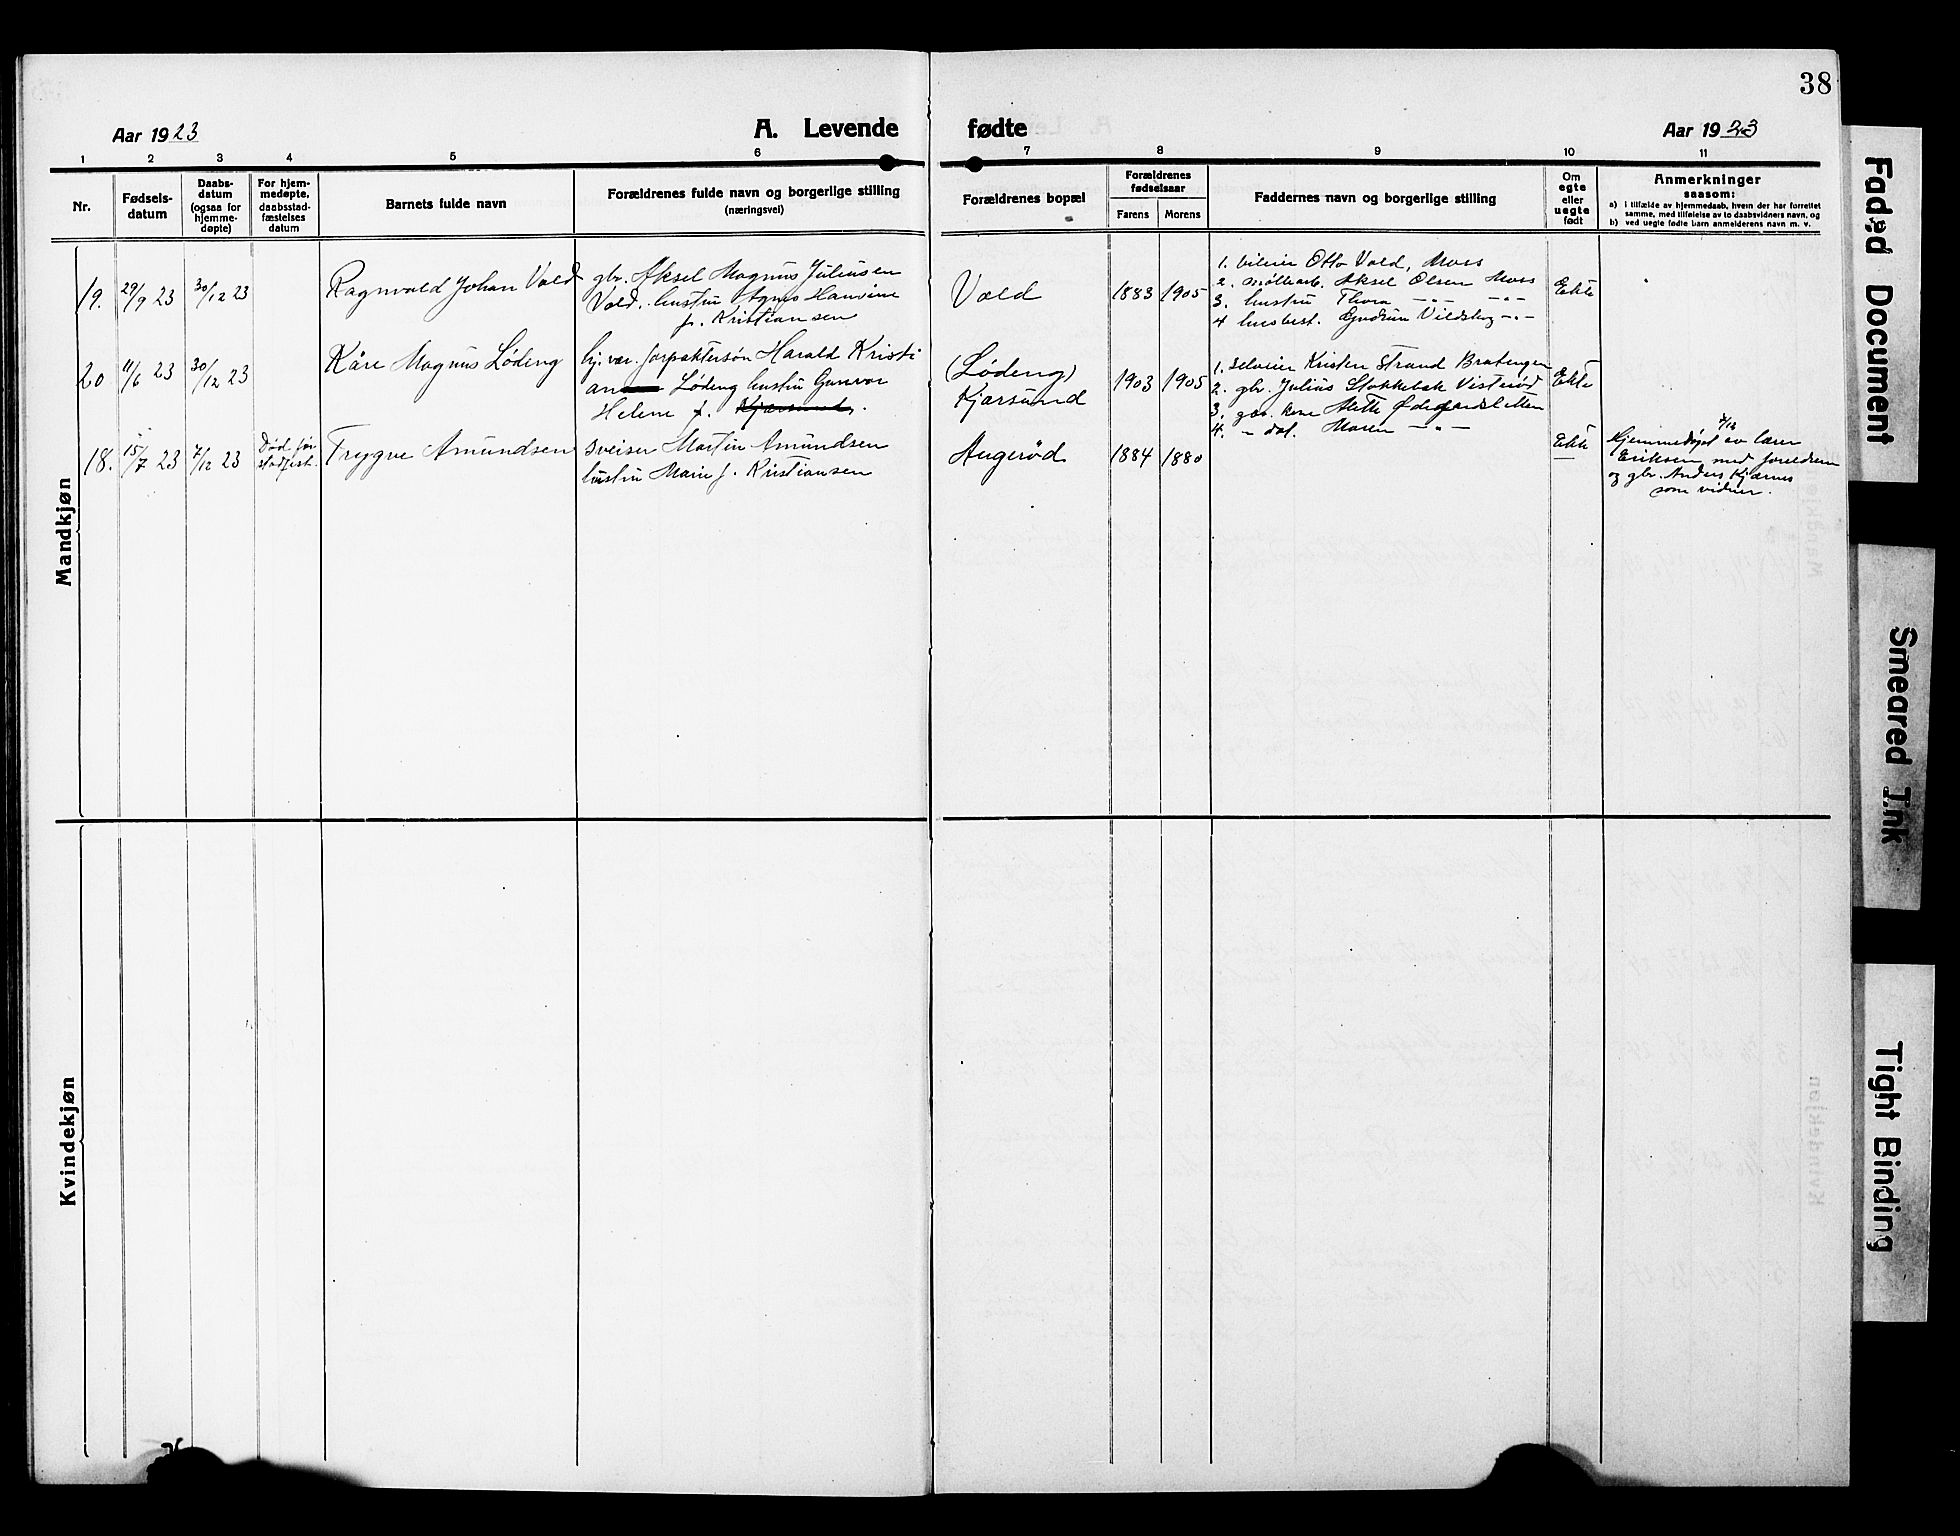 38
Aar 1923
A. Levende
fødte
Aar 1923
1 2 3 4 5 6 7 8 9 10 11
Nr.
Fødsels-
datum
Daabs-
datum
(ogsaa for
hjemme-
døpte)
For hjem-
medøpte,
daabsstad-
fæstelses
datum
Barnets fulde navn
Forældrenes fulde navn og borgerlige stilling
(næringsvei)
Forældrenes bopæl
Forældrenes
fødselsaar
Farens Morens
Faddernes navn og borgerlige stilling
Om
egte
eller
uegte
født
Anmerkninger
saasom:
a) i tilfælde av hjemmedaab, hvem der har forrettet
samme, med tilføielse av to daabsvidners navn, og
b) ved uegte fødte barn anmelderens navn m. v.
Mandkjøn
19.
29/9 23
30/12 23
Ragnvald Johan Vold
gbr. Aksel Magnus Juliusen
Vold. hustru Agnes Hansine
f. Kristiansen
Vold
1883
1905
1. Otto Vold, Moss
2. Aksel Olsen Moss
3. hustru Thora -"- -"-
4 -"-
Ekte
20
11/6 23
30/12 23
Kåre Magnus Løding
forpaktersøn Harald Kristi
an Løding hustru Gunvor
Helene f. Kjærsund.
(Løding)
Kjærsund
1903
1905
1. selveier Kristen Strand Bratengen
2. gbr. Julius Stokkebæk
3.
4. - dat. Maren -"-
Ekte
18.
15/7 23
7/12 23
Død før
stadfest.
Trygve Amundsen
Sveiser Martin Amundsen
hustru Marie f. Kristiansen
Augerød
1884
1880
Ekte
Hjemmedøpt av lærer
Eriksen med foreldrene
og gbr. Anders Kjærnes
som vidner.
Kvindekjøn
Faded Document
Smeared Ink
Tight Binding